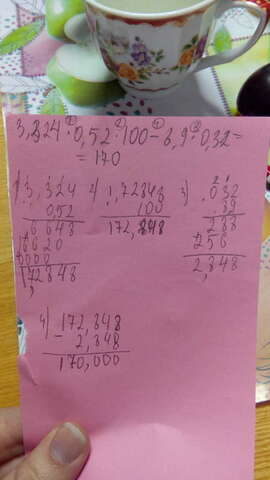 1 2 4 3
3,324 · 0,52 · 100 - 8,9 · 0,32 =
= 170
1) 3,324
0,52
6648
16620
0000
1,72848
2) 1,72848
100
172,848
3) 0,32
8,9
288
256
2,848
4) 172,848
- 2,848
170,000